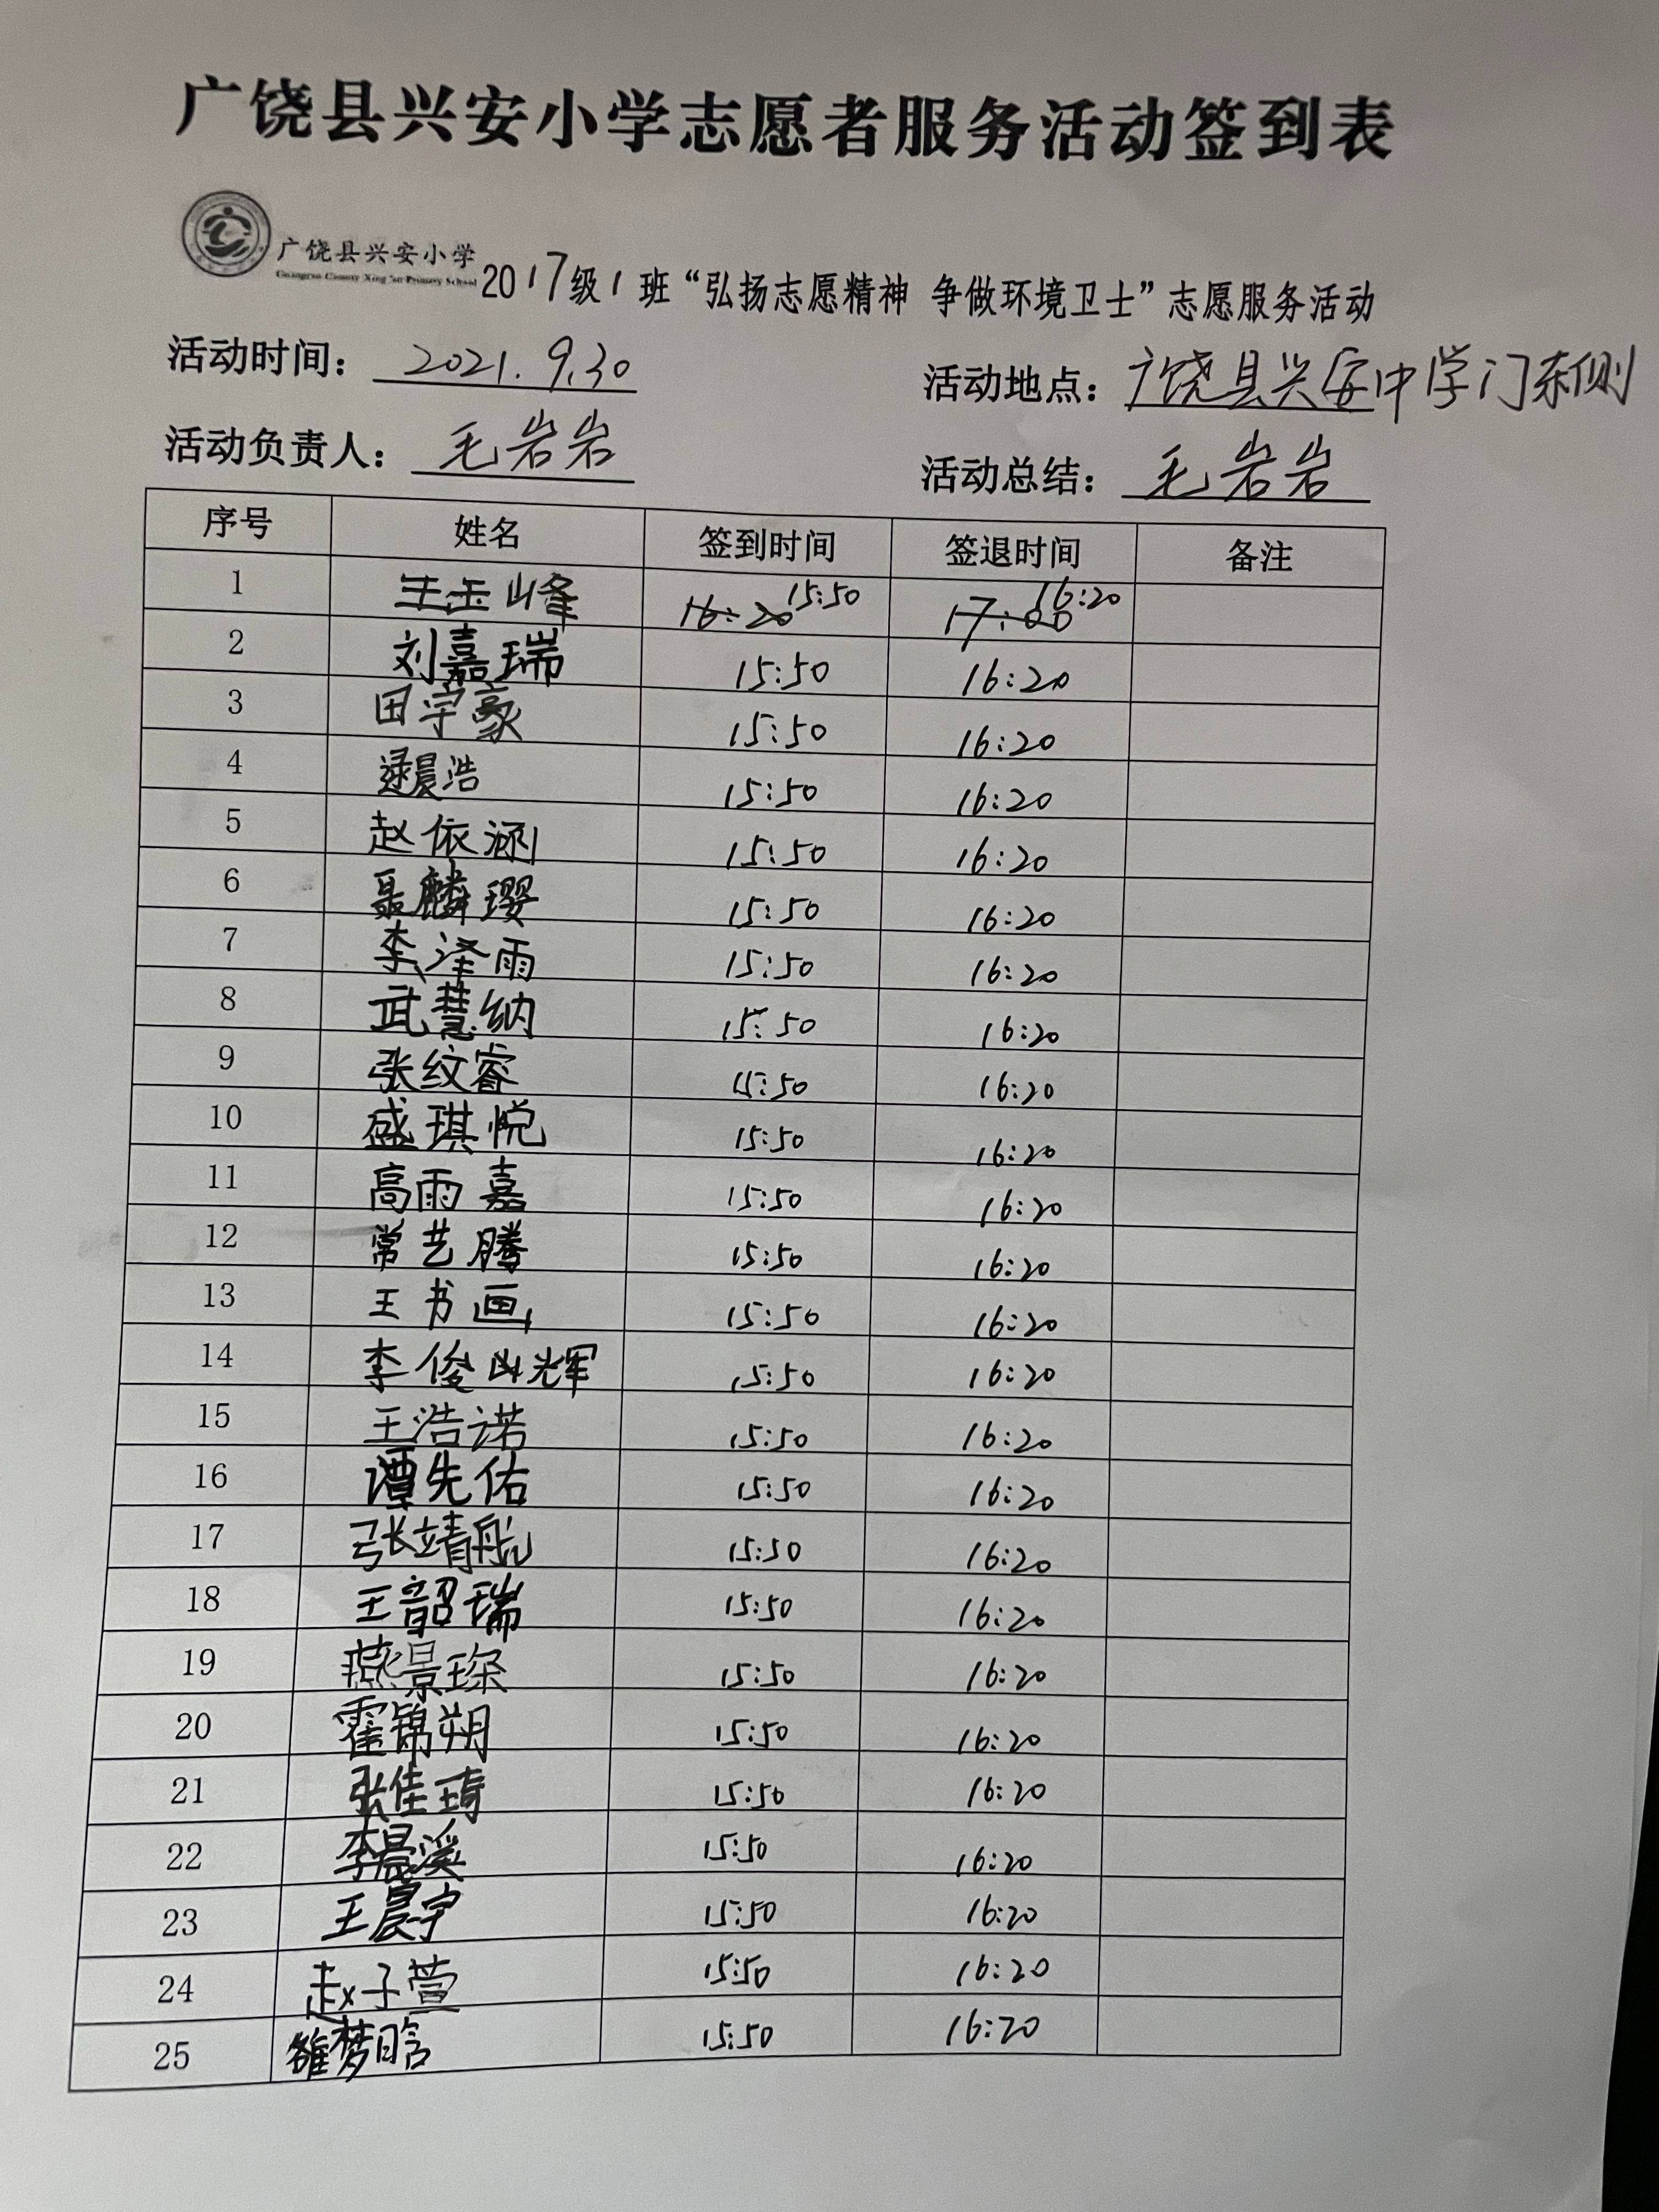 广饶县兴安小学志愿者服务活动签到表
广饶县兴安小学
Guangrao County Xing'an Primary School
2017级1班“弘扬志愿精神 争做环境卫士”志愿服务活动
活动时间： 2021.9.30 活动地点：广饶县兴安中学门东侧
活动负责人： 毛岩岩 活动总结： 毛岩岩
序号 姓名 签到时间 签退时间 备注
1 王玉峰 16:20 15:50 17:00 16:20
2 刘嘉瑞 15:50 16:20
3 田宇豪 15:50 16:20
4 逯晨浩 15:50 16:20
5 赵依涵 15:50 16:20
6 聂麟璎 15:50 16:20
7 李泽雨 15:50 16:20
8 武慧纳 15:50 16:20
9 张纹睿 15:50 16:20
10 盛琪悦 15:50 16:20
11 高雨嘉 15:50 16:20
12 常艺腾 15:50 16:20
13 王书画 15:50 16:20
14 李俊辉 15:50 16:20
15 王浩诺 15:50 16:20
16 谭先佑 15:50 16:20
17 张靖航 15:50 16:20
18 王韶瑞 15:50 16:20
19 燕景琛 15:50 16:20
20 霍锦朔 15:50 16:20
21 张佳琦 15:50 16:20
22 李晨溪 15:50 16:20
23 王晨宇 15:50 16:20
24 赵子萱 15:50 16:20
25 雒梦晗 15:50 16:20